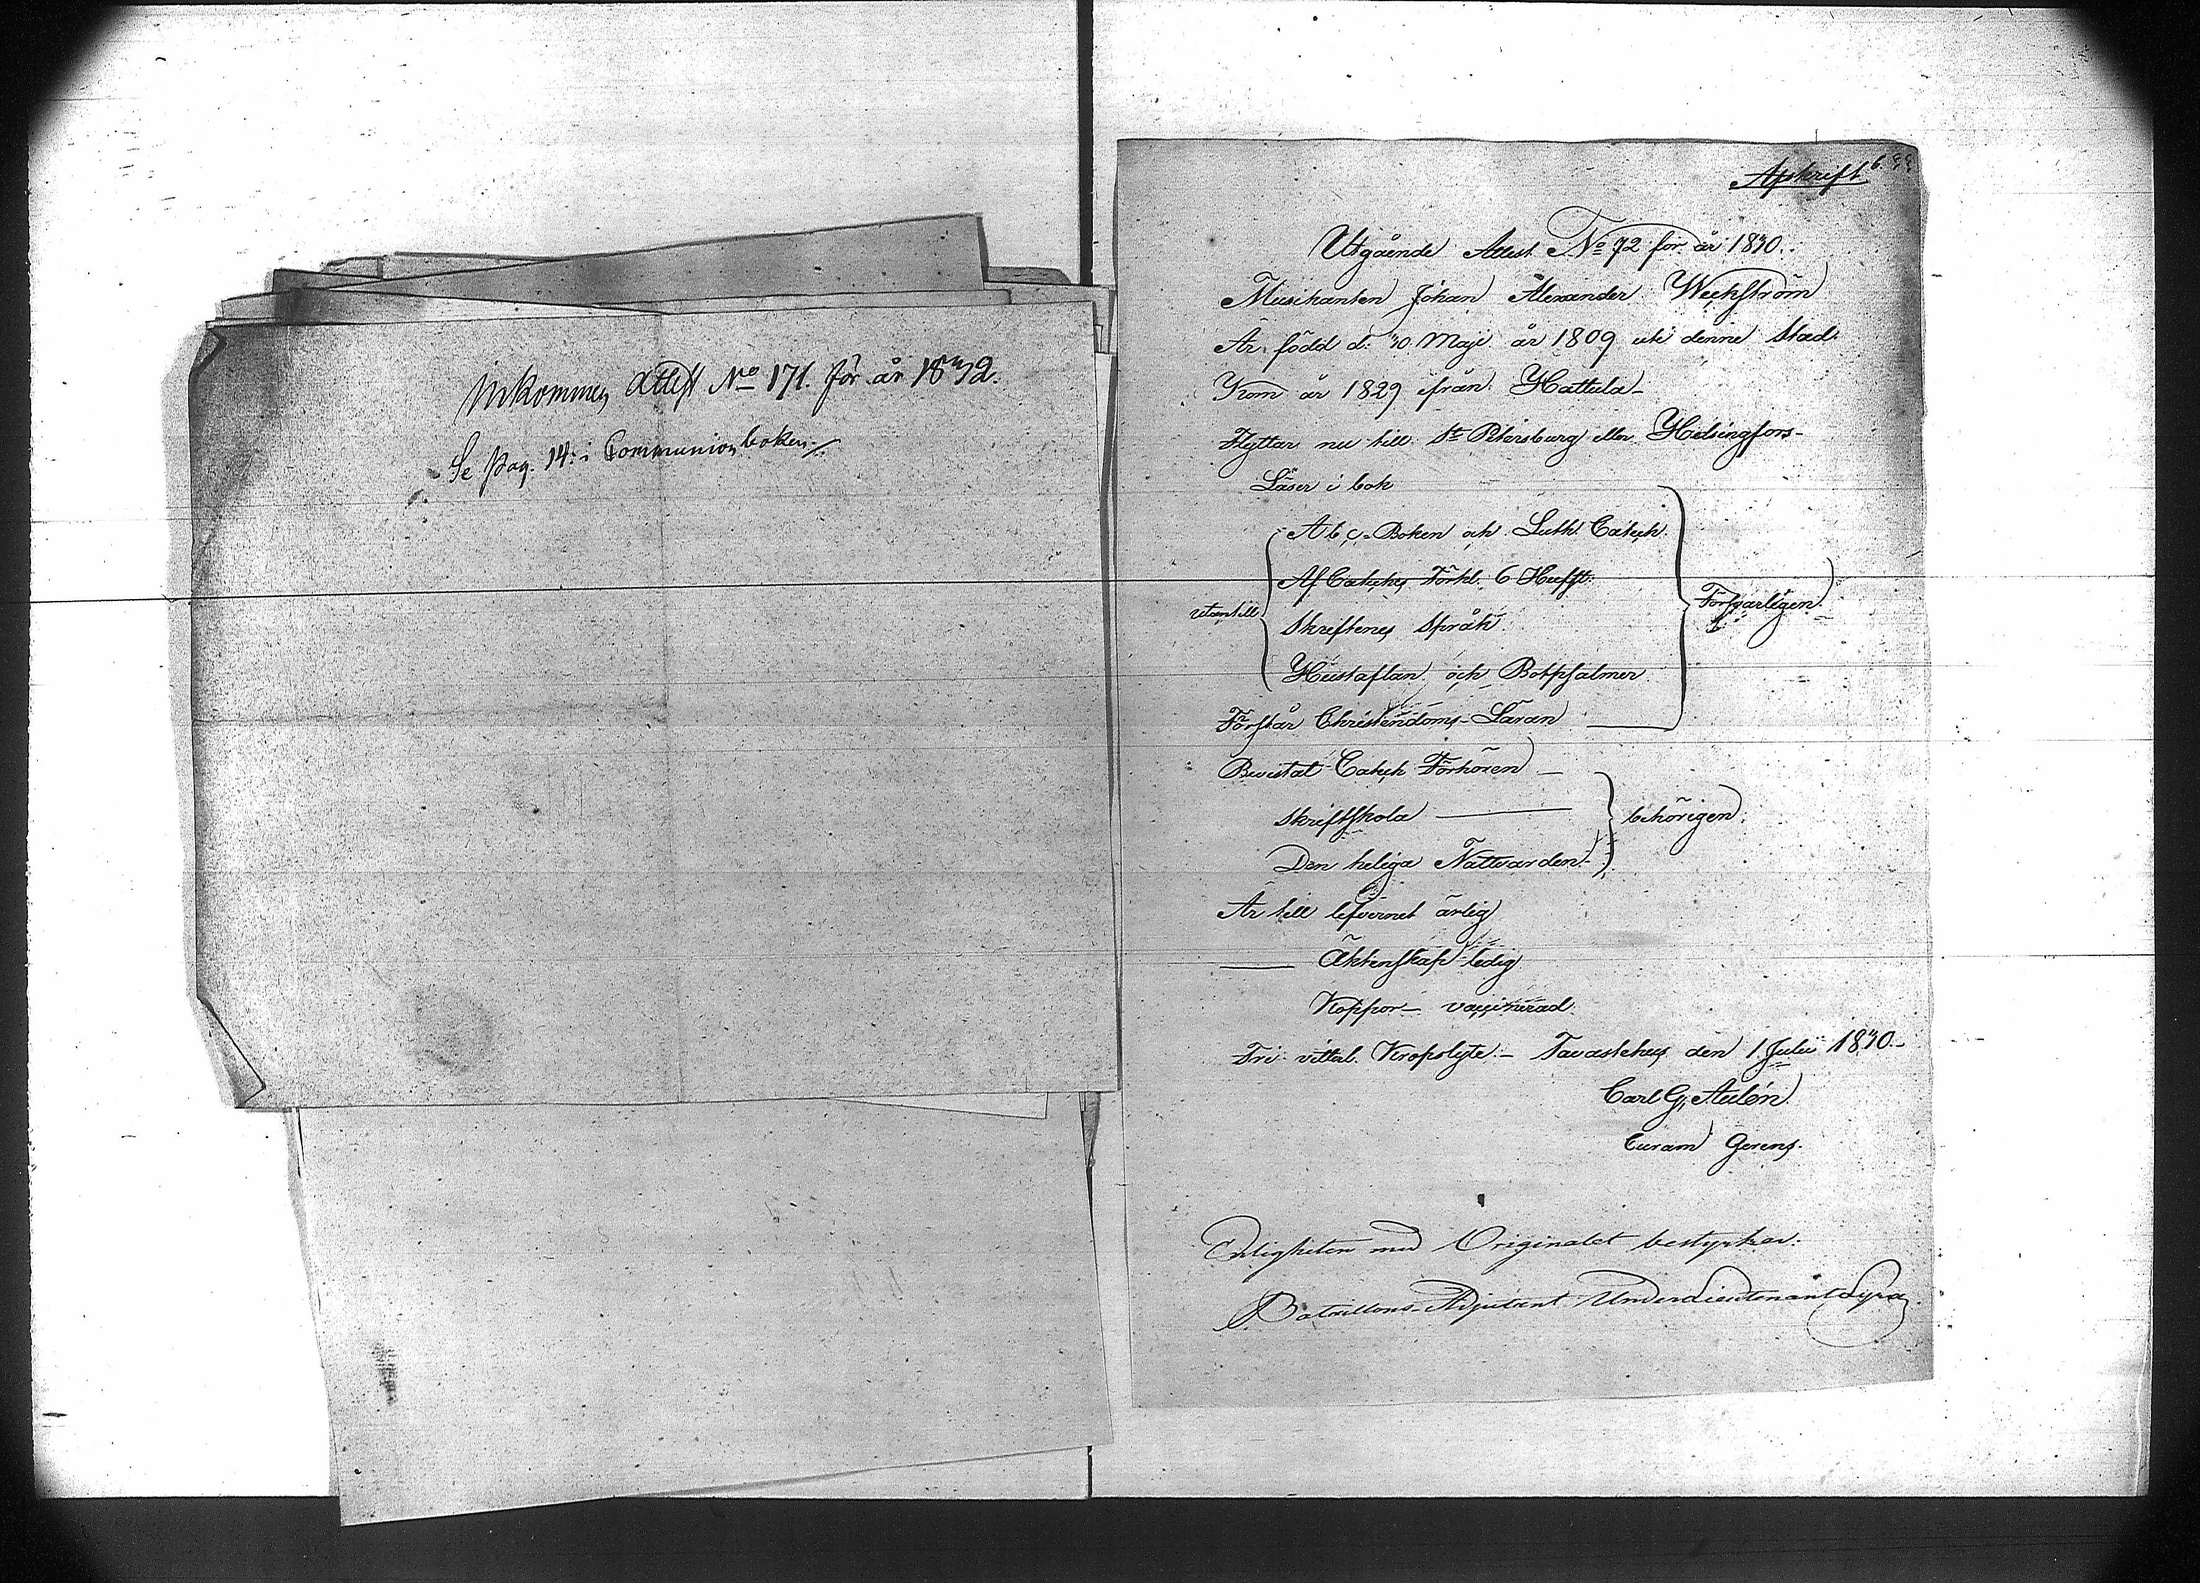 Inkommen Attest No 171. för år 1832.
Se pag. 14. i Communionboken
Afskrift
Utgående Attest No 72 för år 1830.
Musikanten Johan Alexander Weckström
Är född d. 30 Maji år 1809 uti denne Stad.
Kom år 1829 ifrån Hattula
Flyttar nu till St Petersburg eller Helsingfors
Läser i bok
Abc-Boken och Luth. Catech.
Af Cateches Förkl. 6 Hufst.
utantill
Skriftenes Språk
Försvarligen
Hustaflan och Botpsalmer
Förstår Christendoms-Läran
Bevistat Catech Förhören
Skriftskola
behörigen
Den heliga Nattvarden
Är till lefvernet ärlig
Äktenskap ledig
Koppor vaccinerad
Tavastehus den 1 Julii 1830
Carl G. Aulén
Curam Gerens.
Enligheten med Originalet bestyrker.
Bataillons-Adjutant Underlieutenant